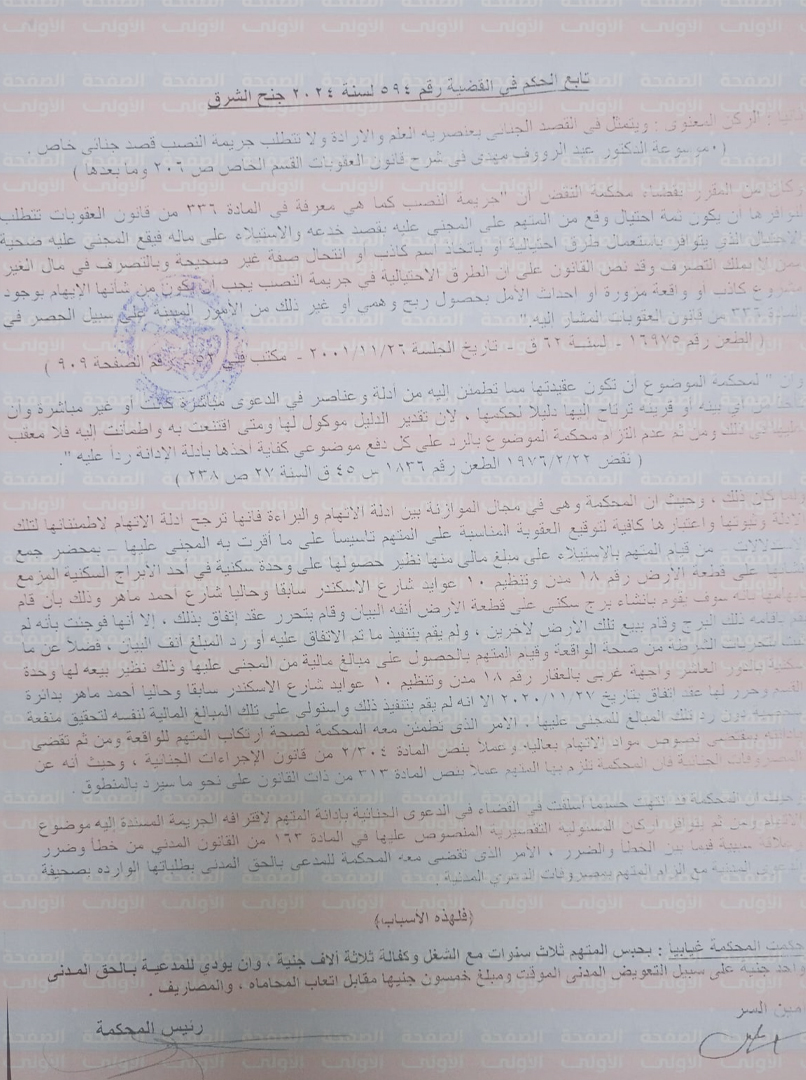 تابع الحكم في القضية رقم ٥٩٤ لسنة ٢٠٢٤ جنح الشرق
الركن المعنوى : ويتمثل فى القصد الجنائى بعنصريه العلم والارادة ولا تتطلب جريمة النصب قصد جنائى خاص .
( موسوعة الدكتور عبد الرووف مهدى فى شرح قانون العقوبات القسم الخاص ص ٢٠٦ وما بعدها )
وكان من المقرر بقضاء محكمة النقض أن "جريمة النصب كما هى معرفة في المادة ٣٣٦ من قانون العقوبات تتطلب
لتوافرها أن يكون ثمة احتيال وقع من المتهم على المجنى عليه بقصد خدعه والاستيلاء على ماله فيقع المجنى عليه ضحية
الاحتيال الذى يتوافر باستعمال طرق احتيالية أو باتخاذ اسم كاذب أو انتحال صفة غير صحيحة وبالتصرف في مال الغير
ممن لا يملك التصرف وقد نص القانون على أن الطرق الاحتيالية في جريمة النصب يجب أن يكون من شأنها الإيهام بوجود
مشروع كاذب أو واقعة مزورة أو احداث الأمل بحصول ربح وهمي أو غير ذلك من الأمور المبينة على سبيل الحصر في
المادة ٣٣٦ من قانون العقوبات المشار إليه."
( الطعن رقم ١٦٩٧٥ - لسنة ٦٢ ق - تاريخ الجلسة ٢٠٠١/١١/٢٦ - مكتب فني ٥٢ - رقم الصفحة ٩٠٩ )
وأن " لمحكمة الموضوع أن تكون عقيدتها مما تطمئن إليه من أدلة وعناصر في الدعوى مباشرة كانت أو غير مباشرة وأن
أى بينه أو قرينه ترتاح إليها دليلا لحكمها ، لأن تقدير الدليل موكول لها ومتى اقتنعت به واطمأنت إليه فلا معقب
عليها في ذلك ومن ثم عدم التزام محكمة الموضوع بالرد على كل دفع موضوعي كفاية أخذها بأدلة الادانة ردأ عليه ".
( نقض ١٩٧٦/٢/٢٢ الطعن رقم ١٨٣٦ س ٤٥ ق السنة ٢٧ ص ٢٣٨ )
كان ذلك ، وحيث أن المحكمة وهى فى مجال الموازنة بين ادلة الاتهام والبراءة فانها ترجح ادلة الاتهام لاطمئنانها لتلك
الادلة وثبوتها واعتبارها كافية لتوقيع العقوبة المناسبة على المتهم تاسيسا على ما أقرت به المجنى عليها – بمحضر جمع
الاستدلالات - من قيام المتهم بالإستيلاء على مبلغ مالى منها نظير حصولها على وحدة سكنية في أحد الأبراج السكنية المزمع
على قطعة الارض رقم ١٨ مدن وتنظيم ١٠ عوايد شارع الاسكندر سابقا وحاليا شارع أحمد ماهر وذلك بأن قام
بإيهامها بأنه سوف يقوم بانشاء برج سكنى على قطعة الارض أنفه البيان وقام بتحرر عقد إتفاق بذلك ، إلا أنها فوجئت بأنه لم
يقم باقامه ذلك البرج وقام ببيع تلك الارض لاخرين ، ولم يقم بتنفيذ ما تم الاتفاق عليه أو رد المبلغ أنف البيان ، فضلا عن ما
بتحريات الشرطة من صحة الواقعة وقيام المتهم بالحصول على مبالغ مالية من المجنى عليها وذلك نظير بيعه لها وحدة
سكنية بالدور العاشر واجهة غربى بالعقار رقم ١٨ مدن وتنظيم ١٠ عوايد شارع الاسكندر سابقا وحاليا أحمد ماهر بدائرة
القسم وحرر لها عقد اتفاق بتاريخ ٢٠٢٠/١١/٢٧ الا انه لم يقم بتنفيذ ذلك واستولى على تلك المبالغ المالية لنفسه لتحقيق منفعة
شخصية دون رد تلك المبالغ للمجنى عليها ، الامر الذى تطمئن معه المحكمة لصحة ارتكاب المتهم للواقعة ومن ثم تقضى
نصوص مواد الاتهام بعاليه وعملا بنص المادة ٢/٣٠٤ من قانون الإجراءات الجنائية ، وحيث أنه عن
المصروفات الجنائية فان المحكمة تلزم بها المتهم عملا بنص المادة ٣١٣ من ذات القانون على نحو ما سيرد بالمنطوق .
وحيث أن المحكمة قد انتهت حسبما أسلفت فى القضاء فى الدعوى الجنائية بادانة المتهم لاقترافه الجريمة المسندة إليه موضوع
الاتهام ومن ثم يتوافر اركان المسئوليه التقصيرية المنصوص عليها في المادة ١٦٣ من القانون المدنى من خطأ وضرر
وعلاقة سببية فيما بين الخطأ والضرر ، الأمر الذى تقضى معه المحكمة للمدعى بالحق المدنى بطلباتها الوارده بصحيفة
الدعوى المدنية مع الزام المتهم بمصروفات الدعوى المدنية .
﴿فلهذه الأسباب﴾
حكمت المحكمة غيابياً : بحبس المتهم ثلاث سنوات مع الشغل وكفالة ثلاثة ألاف جنية ، وان يودي للمدعية بالحق المدنى
واحد جنية على سبيل التعويض المدنى الموقت ومبلغ خمسون جنيها مقابل اتعاب المحاماه ، والمصاريف .
امين السر
رئيس المحكمة
الصفحة الأولى